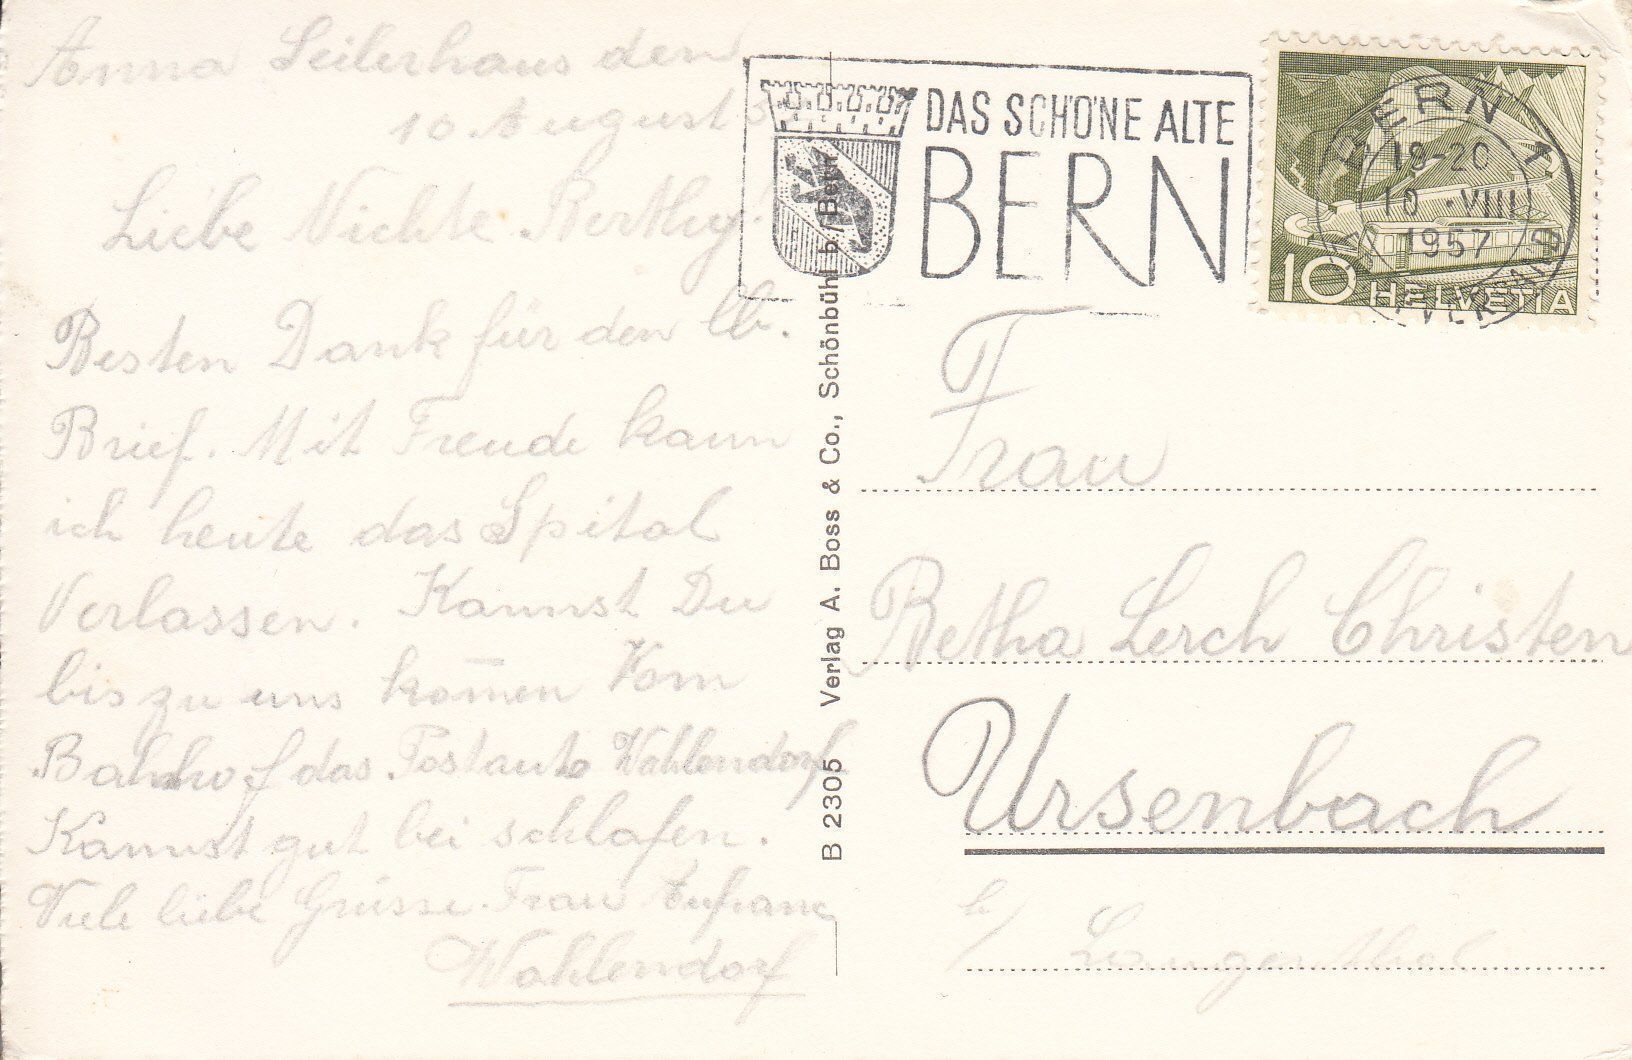 Anna Seilerhaus den
10 August 57
Liebe Nichte Berthy!
Besten Dank für den lb.
Brief. Mit Freude kann
ich heute das Spital
Verlassen. Kannst Du
bis zu uns kom̄en Vom
Bahnhof das Postauto Wahlendorf
Kannst gut bei schlafen.
Viele liebe Grüsse. Frau
Wahlendorf
B 2305 Verlag A. Boss & Co., Schönbühl b/Bern
DAS SCHÖNE ALTE
BERN
BERN 1
18-20
10.VIII
1957
10 HELVETIA
Frau
Betha Lerch Christen
Ursenbach
b/ Langenthal